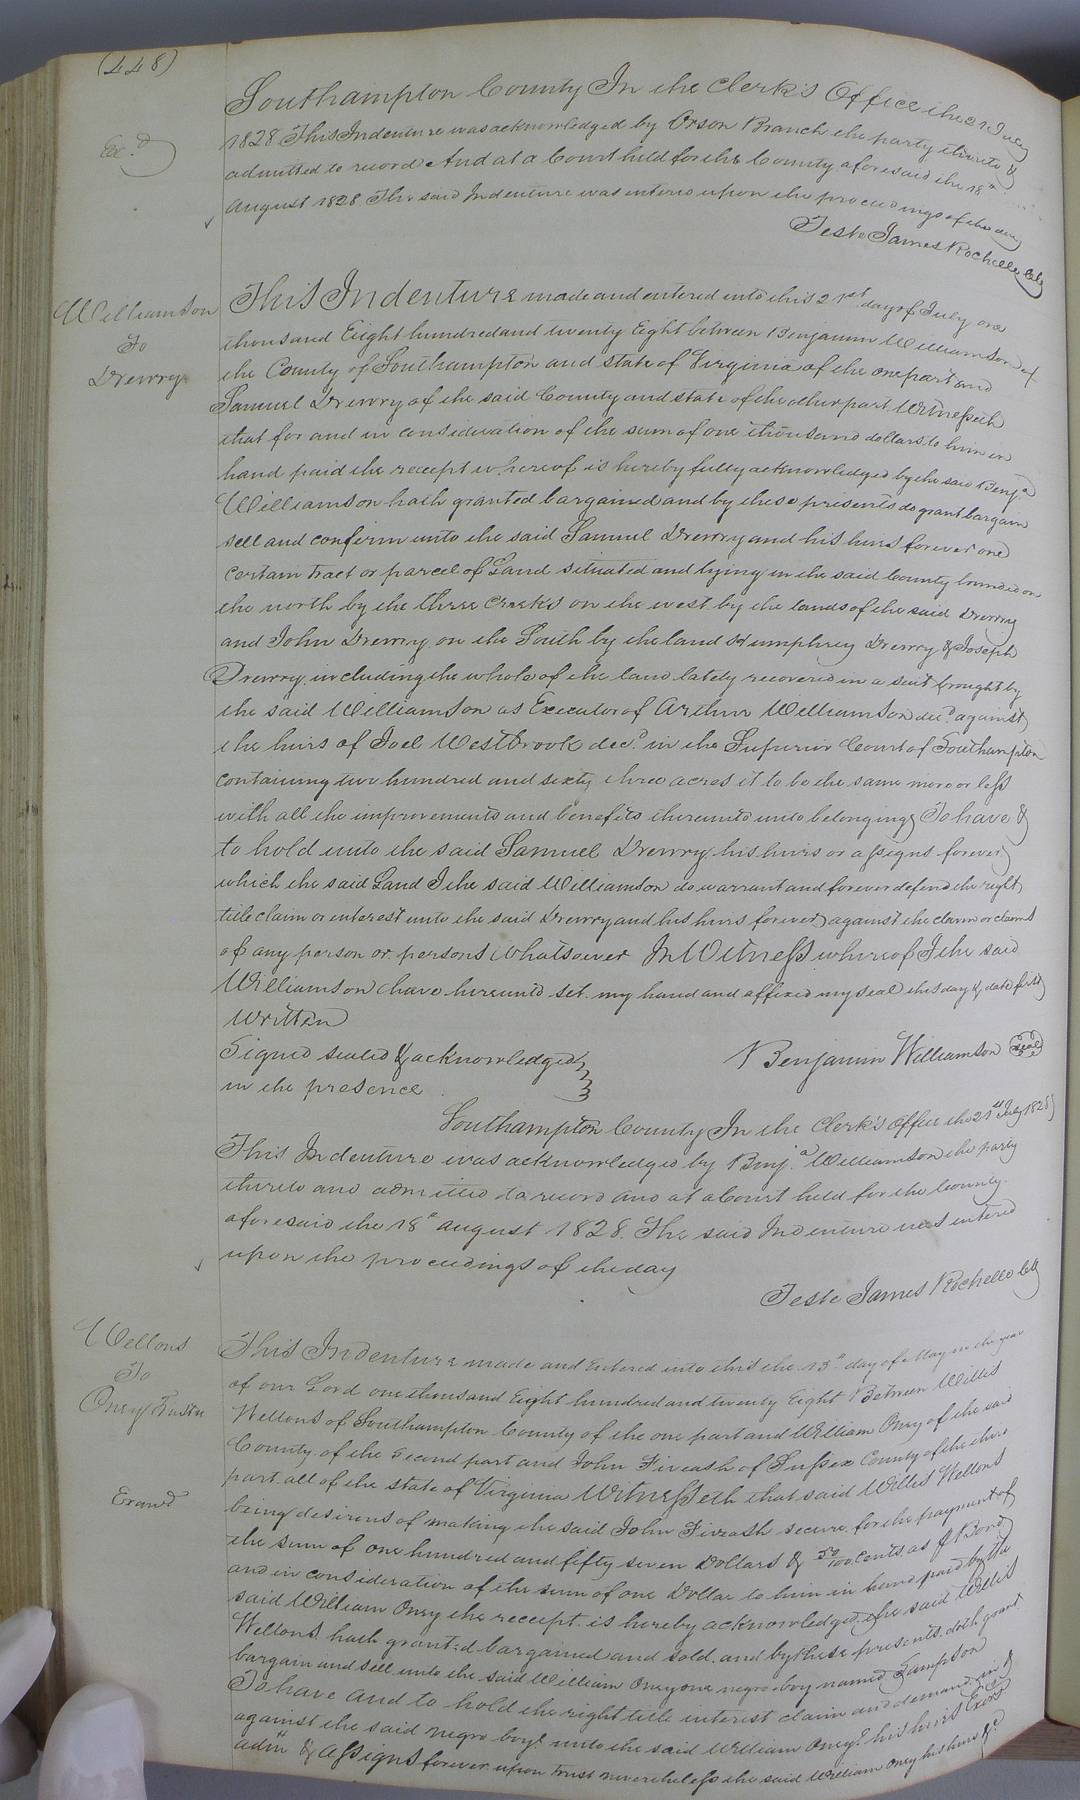 (448)
Southampton County In the Clerk's Office the 21 July
Exd.
1828 This Indenture was acknowledged by Orson Branch the party thereto &
admitted to record And at a Court held for the County aforesaid the 18th
August 1828 The said Indenture was entered upon the proceedings of the day
Teste James Rochelle Clk
Williamson
To
Drewry
This Indenture made and entered into this 21st day of July one
thousand Eight hundred and twenty Eight between Benjamin Williamson of
the County of Southampton and state of Virginia of the one part and
Samuel Drewry of the said County and state of the other part Witnesseth
that for and in consideration of the sum of one thousand dollars to him in
hand paid the receipt whereof is hereby fully acknowledged by the said Benja
Williamson hath granted bargained and by these presents do grant bargain
sell and confirm unto the said Samuel Drewry and his heirs forever one
certain tract or parcel of Land situated and lying in the said County bounded on
the north by the three creeks on the west by the lands of the said Drewry
and John Drewry on the South by the land Humphrey Drewry & Joseph
Drewry including the whole of the land lately recovered in a suit brought by
the said Williamson as Executor of Arthur Williamson decd. against
the heirs of Joel Westbrook decd. in the Superior Court of Southampton
containing two hundred and sixty three acres it to be the same more or less
with all the improvements and benefits thereunto unto belonging To have &
to hold unto the said Samuel Drewry his heirs or assigns forever
which the said Land I the said Williamson do warrant and forever defend the right
title claim or interest unto the said Drewry and his heirs forever against the claim or claims
of any person or persons whatsoever In Witness whereof I the said
Williamson have hereunto set my hand and affixed my seal this day & date first
written
Signed sealed & acknowledged
in the presence
Benjamin Williamson Seal
Southampton County In the Clerk's Office the 21st July 1828
This Indenture was acknowledged by Benja. Williamson the party
thereto and admitted to record and at a Court held for the County
aforesaid the 18th August 1828. The said Indenture was entered
upon the proceedings of the day
Teste James Rochelle Clk
Wellons
To
Oney Trustee
Examd
This Indenture made and entered into this the 13th day of May in the year
of our Lord one thousand Eight hundred and twenty Eight Between Willis
Wellons of Southampton County of the one part and William Oney of the said
County of the second part and John Fiveash of Sussex County of the third
part all of the state of Virginia Witnesseth that said Willis Wellons
being desirous of making the said John Fiveash secure for the payment of
the sum of one hundred and fifty seven Dollars & 50/100 cents as $ Bond
and in consideration of the sum of one Dollar to him in hand paid by the
said William Oney the receipt is hereby acknowledged the said Willis
Wellons hath granted bargained and sold and by these presents doth grant
bargain and sell unto the said William Oney one negro boy named Sampson
To have and to hold the right title interest claim and demand in &
against the said negro boy unto the said William Oney his heirs Exors
admrs & assigns forever upon trust nevertheless the said William Oney his heirs &c